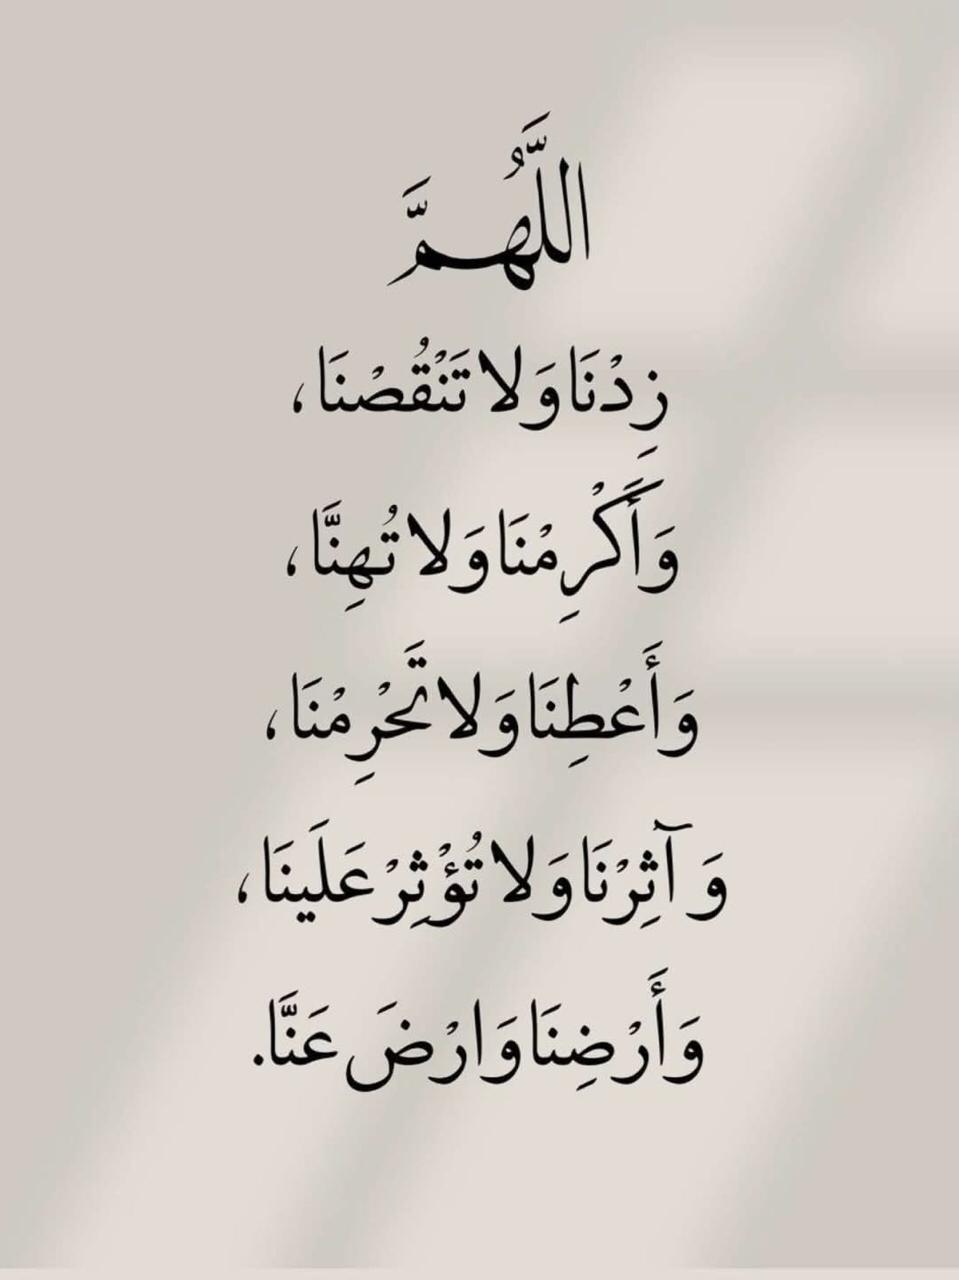 اللَّهُمَّ
زِدْنَا وَلا تَنْقُصْنَا،
وَأَكْرِمْنَا وَلا تُهِنَّا،
وَأَعْطِنَا وَلا تَحْرِمْنَا،
وَآثِرْنَا وَلا تُؤْثِرْ عَلَينَا،
وَأَرْضِنَا وَارْضَ عَنَّا.